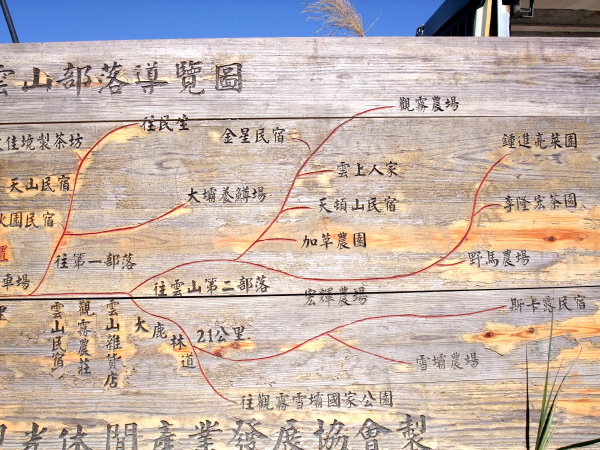 雲山部落導覽圖
觀霧農場
往民生
金星民宿
鍾進亮菜園
佳境製茶坊
雲上人家
天山民宿
大壩養鱒場
天頌山民宿
李隆宏茶園
火園民宿
加草農園
置
往第一部落
野馬農場
車場
往雲山第二部落
宏輝農場
斯卡露民宿
雲山民宿
觀霧農莊
雲山雜貨店
大鹿林道
21公里
雪壩農場
往觀霧雪壩國家公園
光休閒產業發展協會製